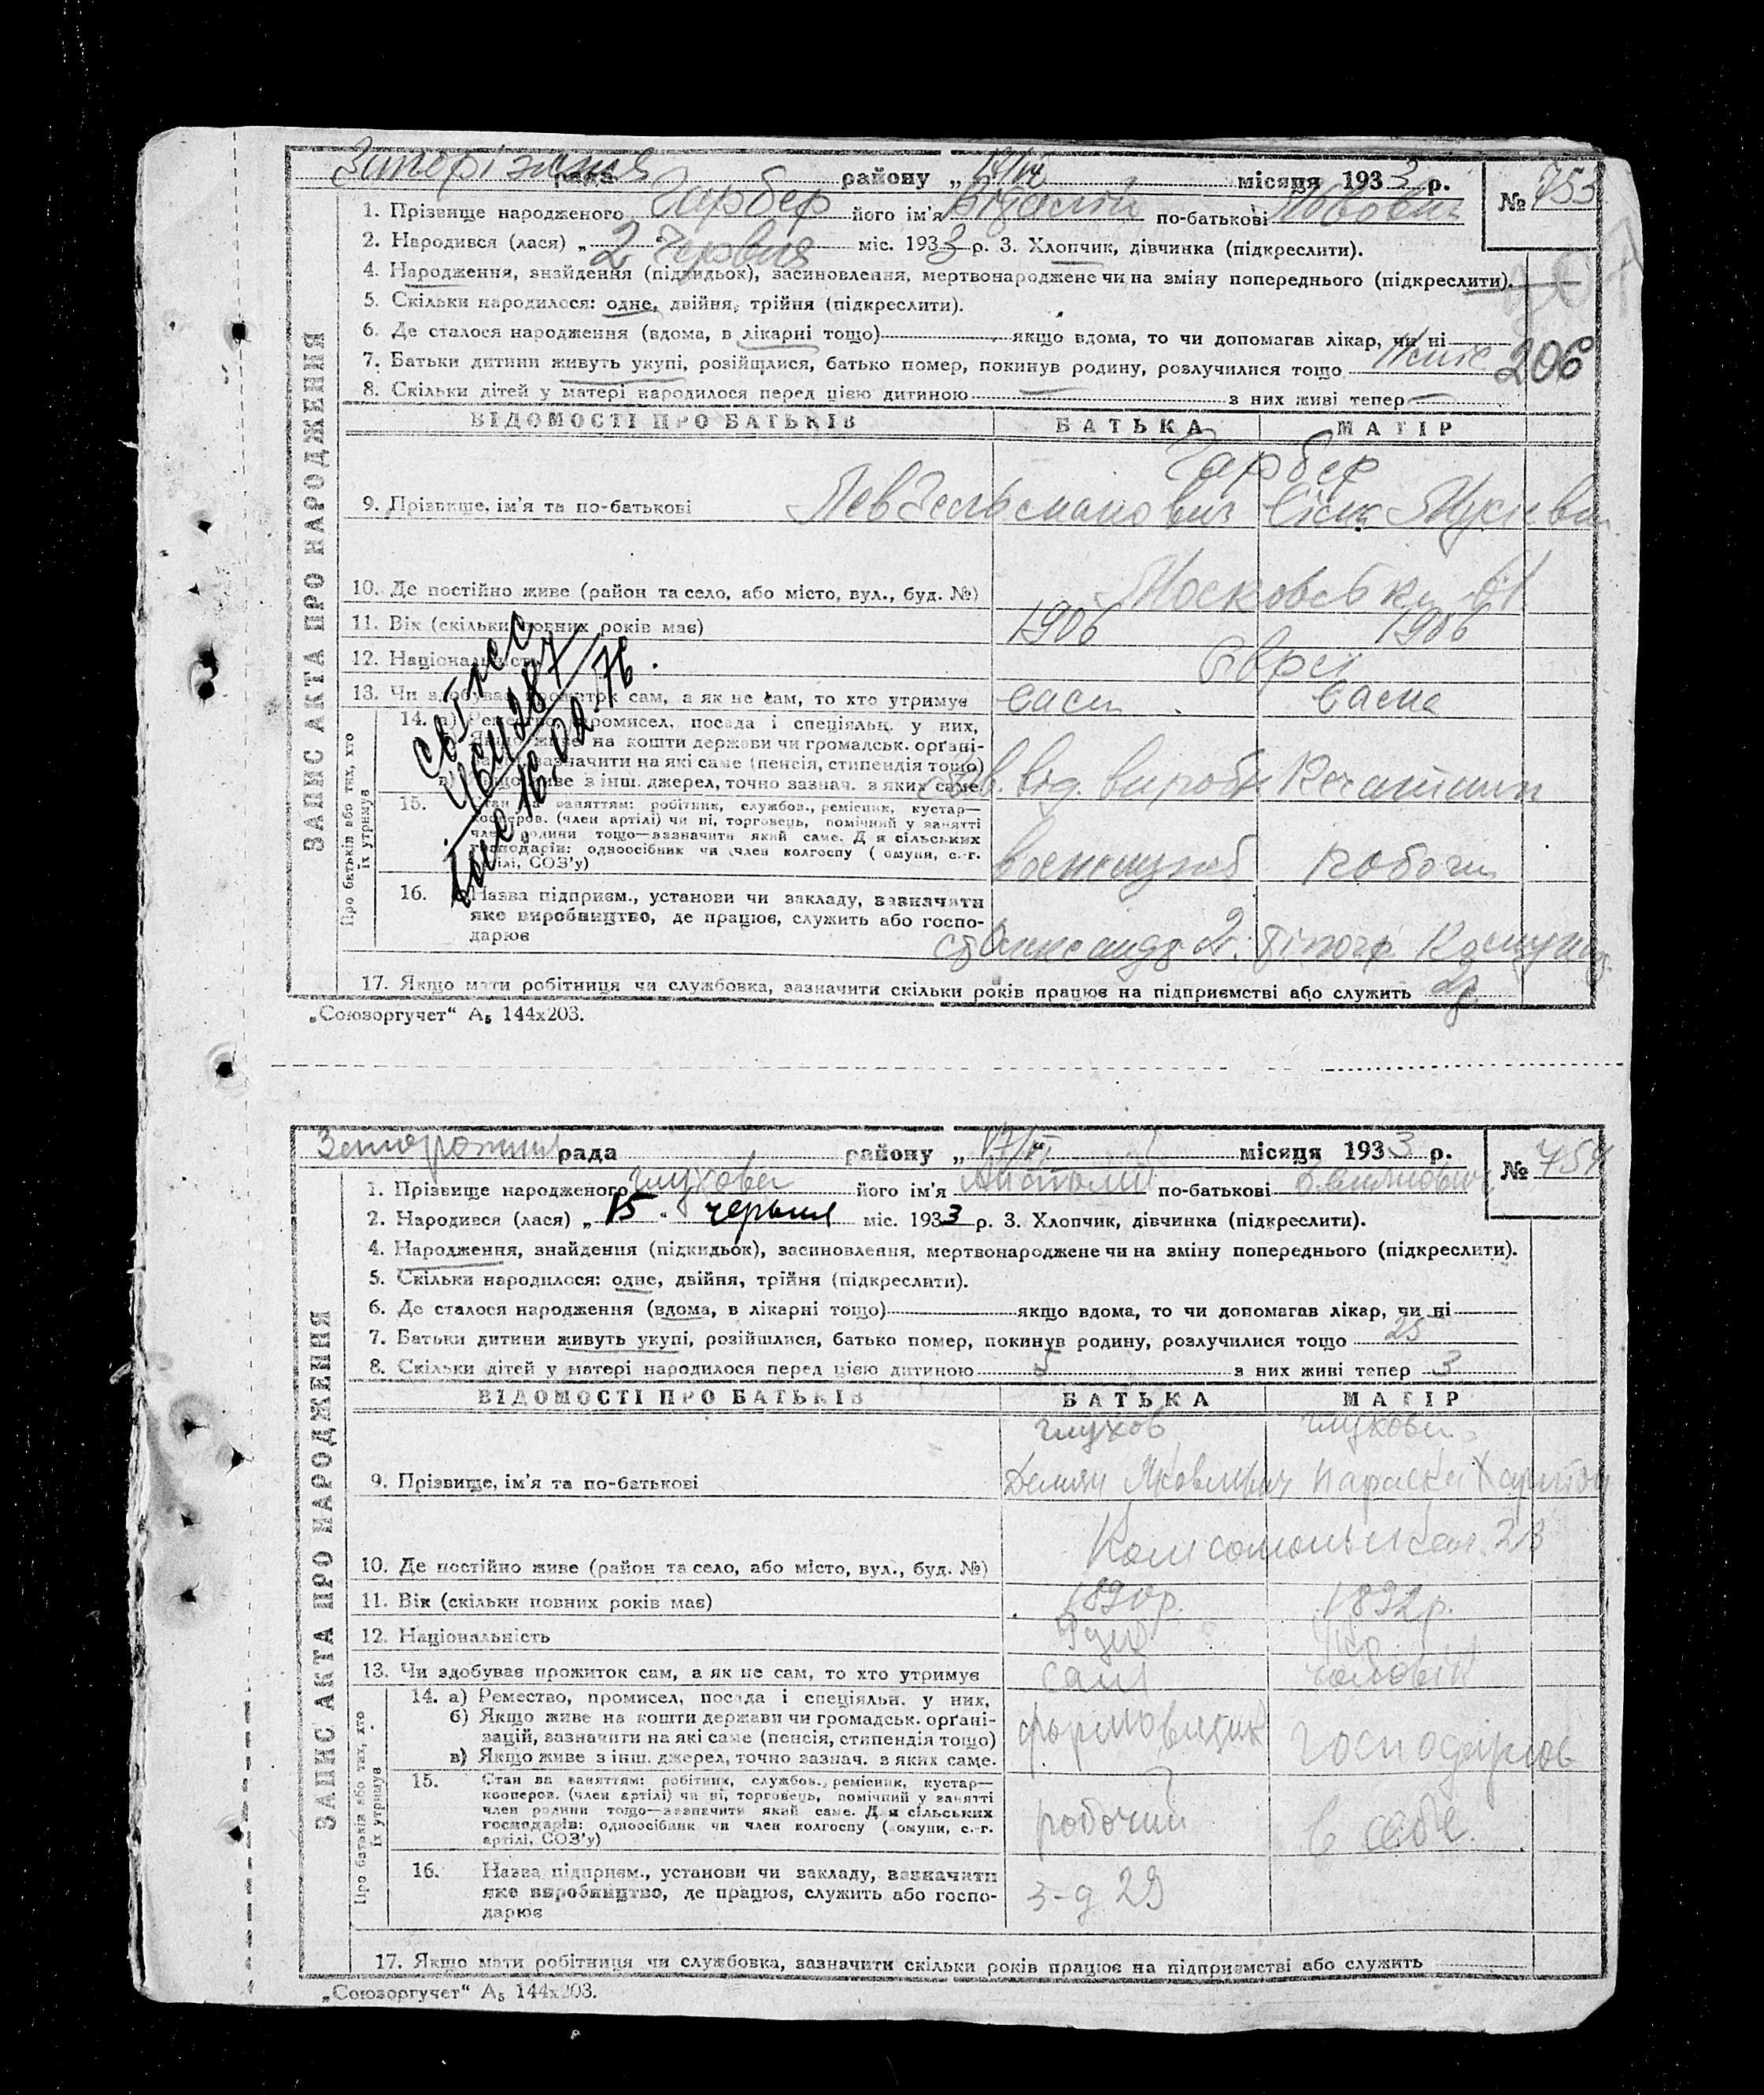 Запоріжжя рада району „ " місяця 1933 р. № 753
1. Прізвище народженого Гарбер його ім'я Віталій по-батькові Львович
2. Народився (лася) „ 2 " червня міс. 1933 р. 3. Хлопчик, дівчинка (підкреслити).
4. Народження, знайдення (підкидьок), засиновлення, мертвонароджене чи на зміну попереднього (підкреслити).
5. Скільки народилося: одне, двійня, трійня (підкреслити).
6. Де сталося народження (вдома, в лікарні тощо) якщо вдома, то чи допомагав лікар, чи ні
7. Батьки дитини живуть укупі, розійшлися, батько помер, покинув родину, розлучилися тощо
206
8. Скільки дітей у матері народилося перед цією дитиною — з них живі тепер —
ЗАПИС АКТА ПРО НАРОДЖЕННЯ
ВІДОМОСТІ ПРО БАТЬКІВ БАТЬКА МАТІР
Гарбер
9. Прізвище, ім'я та по-батькові Лев
10. Де постійно живе (район та село, або місто, вул., буд. №) Московська
11. Вік (скільки повних років має) 1906 1906
12. Національність Євреї
13. Чи здобуває прожиток сам, а як не сам, то хто утримує сам сама
Про батьків або тих, хто
їх утримує
14. а) Ремество, промисел, посада і спеціяльн. у них,
б) Якщо живе на кошти держави чи громадськ. орґані-
зацій, зазначити на які саме (пенсія, стипендія тощо)
в) Якщо живе з інш. джерел, точно зазнач. з яких саме
15. Стан за заняттям: робітник, службов., ремісник, кустар—
кооперов. (член артілі) чи ні, торговець, помічний у занятті
член родини тощо—зазначити який саме. Для сільських
господарів: одноосібник чи член колгоспу (комуни, с.-г.
артілі, СОЗ'у)
робочий
16. Назва підприєм., установи чи закладу, зазначити
яке виробництво, де працює, служить або госпо-
дарює
17. Якщо мати робітниця чи службовка, зазначити скільки років працює на підприємстві або служить
„Союзоргучет" А₅ 144х203.
рада району „ 17/VI " місяця 1933 р. № 754
1. Прізвище народженого Глухова його ім'я Анатолій по-батькові
2. Народився (лася) „ 15 " червня міс. 1933 р. 3. Хлопчик, дівчинка (підкреслити).
4. Народження, знайдення (підкидьок), засиновлення, мертвонароджене чи на зміну попереднього (підкреслити).
5. Скільки народилося: одне, двійня, трійня (підкреслити).
6. Де сталося народження (вдома, в лікарні тощо) якщо вдома, то чи допомагав лікар, чи ні
7. Батьки дитини живуть укупі, розійшлися, батько помер, покинув родину, розлучилися тощо 25
8. Скільки дітей у матері народилося перед цією дитиною 5 з них живі тепер 3
ЗАПИС АКТА ПРО НАРОДЖЕННЯ
ВІДОМОСТІ ПРО БАТЬКІВ БАТЬКА МАТІР
Глухов Глухова
9. Прізвище, ім'я та по-батькові Демян Яковлевич Параска
10. Де постійно живе (район та село, або місто, вул., буд. №)
11. Вік (скільки повних років має) 1890р. 1892р.
12. Національність
13. Чи здобуває прожиток сам, а як не сам, то хто утримує сам чоловік
Про батьків або тих, хто
їх утримує
14. а) Ремество, промисел, посада і спеціяльн. у них,
б) Якщо живе на кошти держави чи громадськ. орґані-
зацій, зазначити на які саме (пенсія, стипендія тощо)
в) Якщо живе з інш. джерел, точно зазнач. з яких саме.
формовщик
15. Стан за заняттям: робітник, службов., ремісник, кустар—
кооперов. (член артілі) чи ні, торговець, помічний у занятті
член родини тощо—зазначити який саме. Для сільських
господарів: одноосібник чи член колгоспу (комуни, с.-г.
артілі, СОЗ'у)
робочий в себе.
16. Назва підприєм., установи чи закладу, зазначити
яке виробництво, де працює, служить або госпо-
дарює
з-д 29
17. Якщо мати робітниця чи службовка, зазначити скільки років працює на підприємстві або служить
„Союзоргучет" А₅ 144х203.